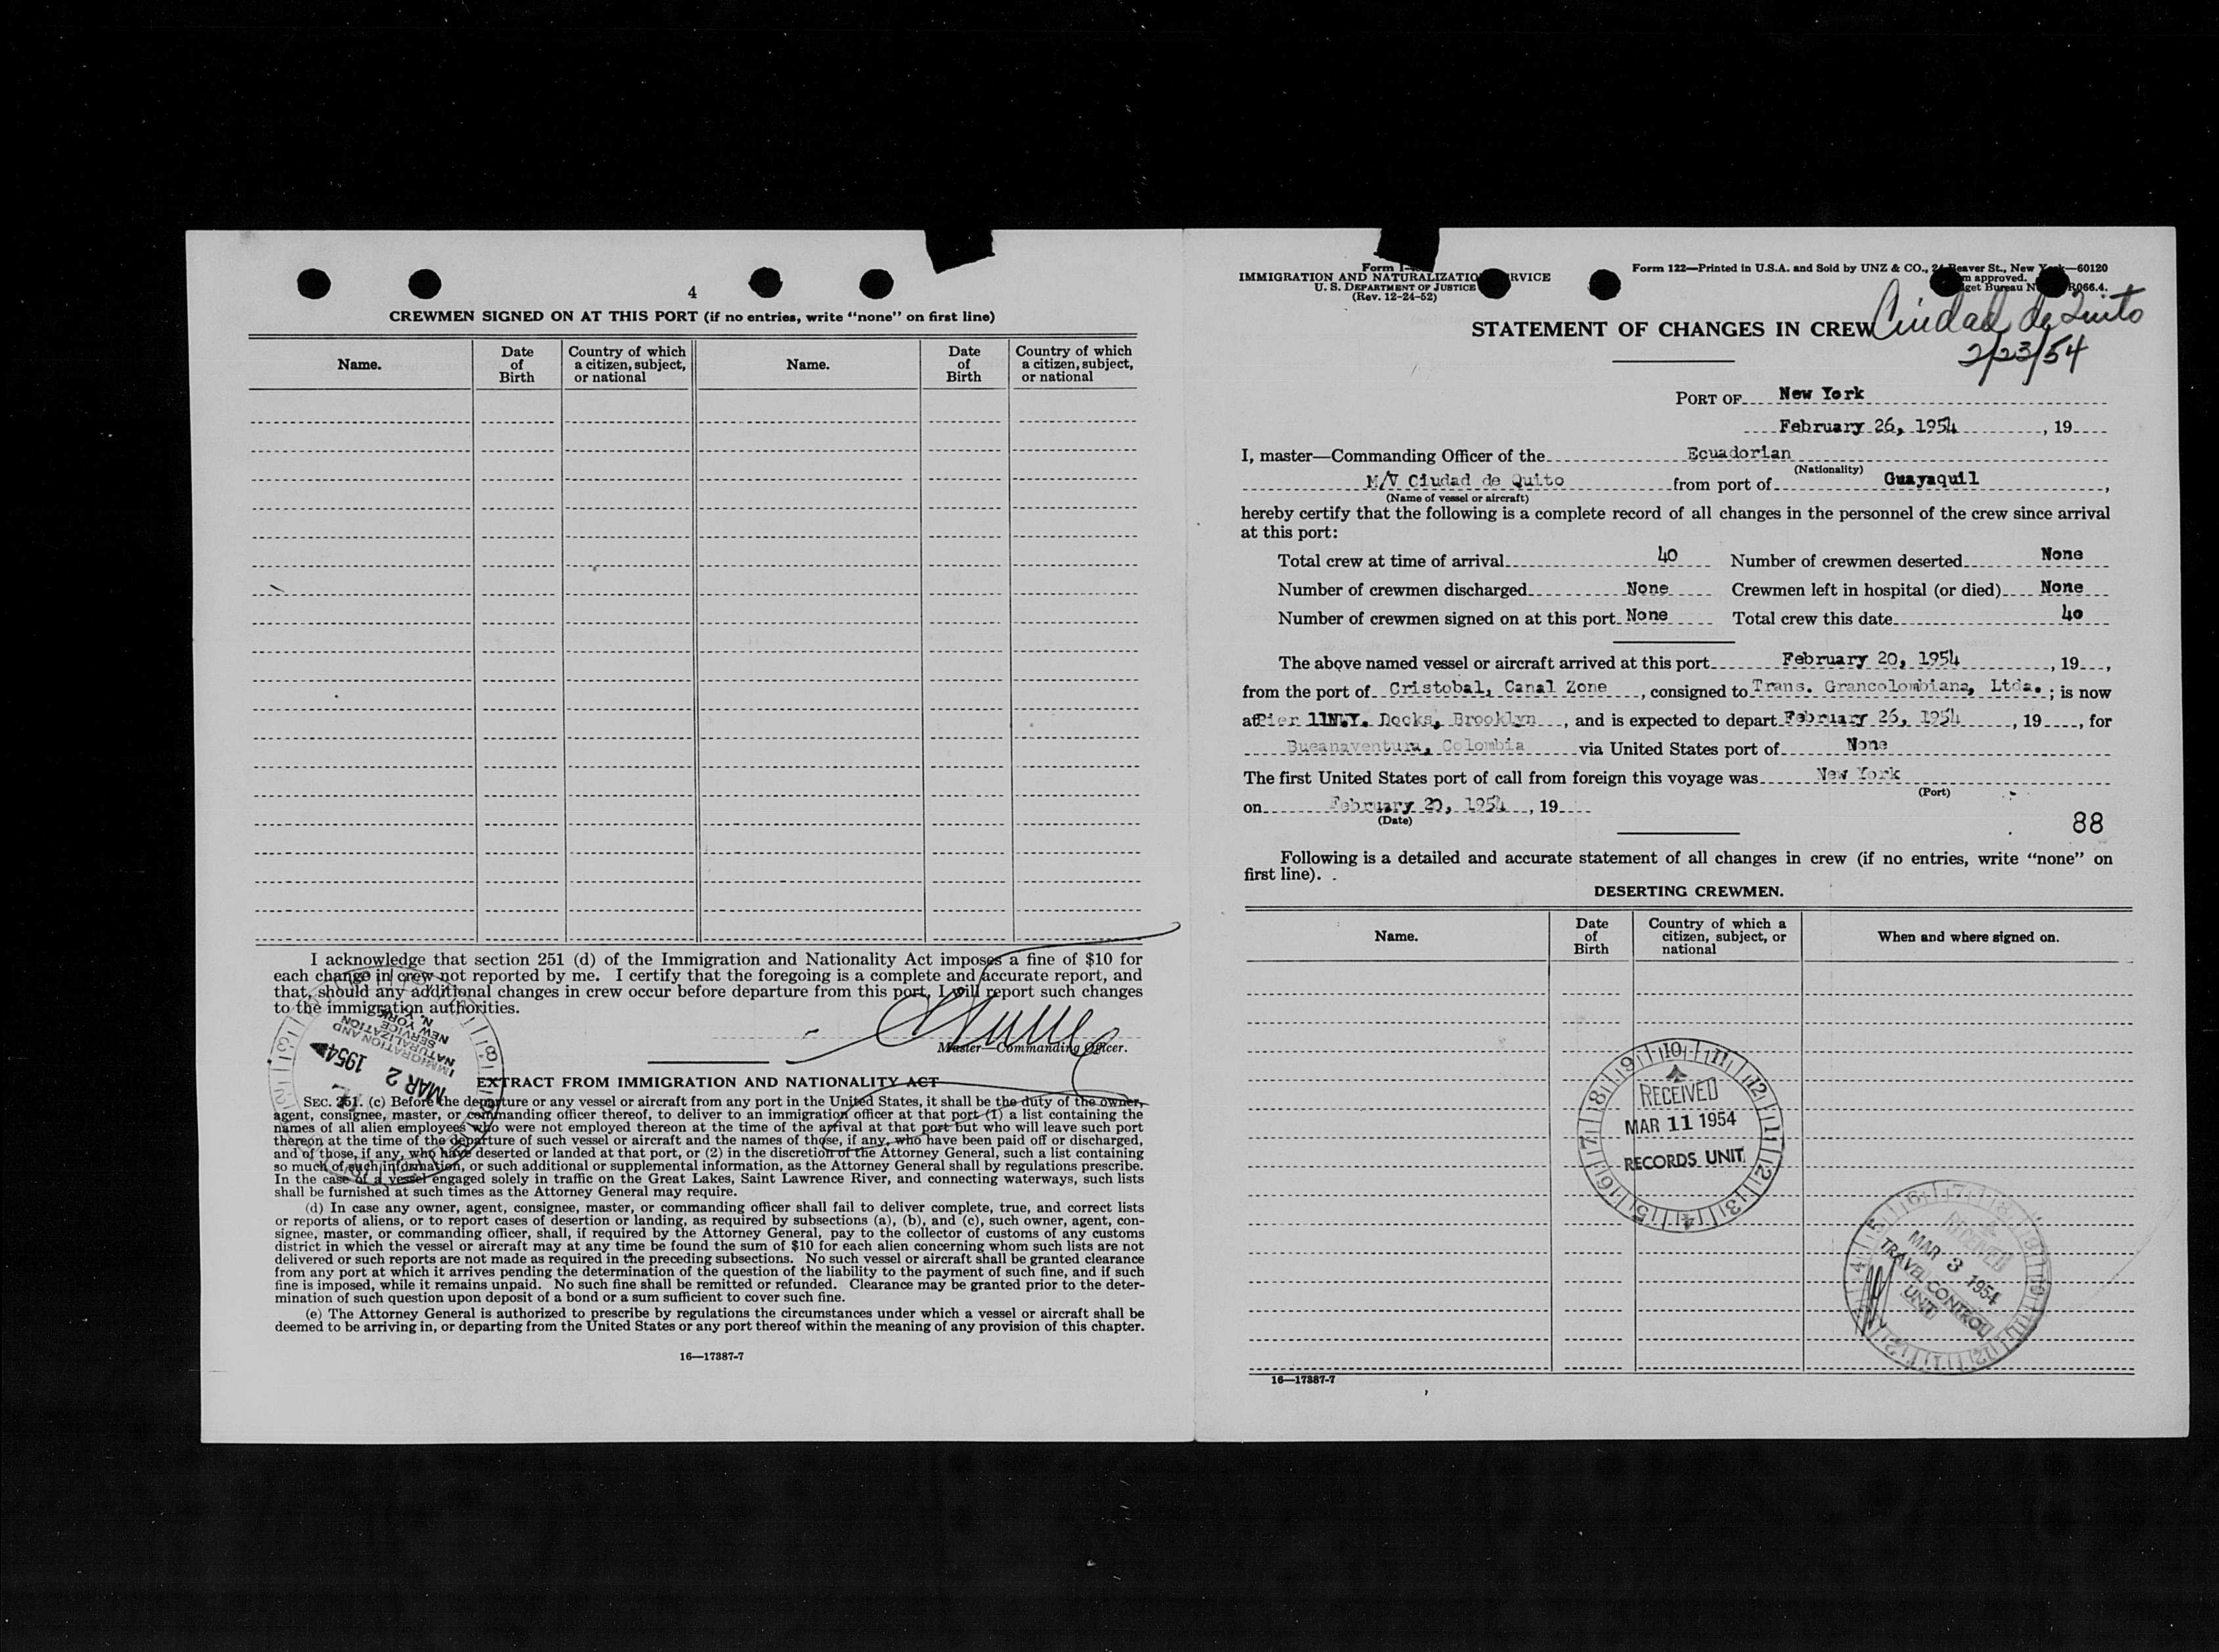 4
CREWMEN SIGNED ON AT THIS PORT (if no entries, write "none" on first line)
Name.
Date of Birth
Country of which a citizen, subject, or national
Name.
Date of Birth
Country of which a citizen, subject, or national
I acknowledge that section 251 (d) of the Immigration and Nationality Act imposes a fine of $10 for
each change in crew not reported by me. I certify that the foregoing is a complete and accurate report, and
that, should any additional changes in crew occur before departure from this port, I will report such changes
to the immigration authorities.
Master—Commanding Officer.
IMMIGRATION AND
NATURALIZATION
SERVICE
NEW YORK, N. Y.
MAR 2 1954
EXTRACT FROM IMMIGRATION AND NATIONALITY ACT
SEC. 251. (c) Before the departure or any vessel or aircraft from any port in the United States, it shall be the duty of the owner,
agent, consignee, master, or commanding officer thereof, to deliver to an immigration officer at that port (1) a list containing the
names of all alien employees who were not employed thereon at the time of the arrival at that port but who will leave such port
thereon at the time of the departure of such vessel or aircraft and the names of those, if any, who have been paid off or discharged,
and of those, if any, who have deserted or landed at that port, or (2) in the discretion of the Attorney General, such a list containing
so much of such information, or such additional or supplemental information, as the Attorney General shall by regulations prescribe.
In the case of a vessel engaged solely in traffic on the Great Lakes, Saint Lawrence River, and connecting waterways, such lists
shall be furnished at such times as the Attorney General may require.
(d) In case any owner, agent, consignee, master, or commanding officer shall fail to deliver complete, true, and correct lists
or reports of aliens, or to report cases of desertion or landing, as required by subsections (a), (b), and (c), such owner, agent, con-
signee, master, or commanding officer, shall, if required by the Attorney General, pay to the collector of customs of any customs
district in which the vessel or aircraft may at any time be found the sum of $10 for each alien concerning whom such lists are not
delivered or such reports are not made as required in the preceding subsections. No such vessel or aircraft shall be granted clearance
from any port at which it arrives pending the determination of the question of the liability to the payment of such fine, and if such
fine is imposed, while it remains unpaid. No such fine shall be remitted or refunded. Clearance may be granted prior to the deter-
mination of such question upon deposit of a bond or a sum sufficient to cover such fine.
(e) The Attorney General is authorized to prescribe by regulations the circumstances under which a vessel or aircraft shall be
deemed to be arriving in, or departing from the United States or any port thereof within the meaning of any provision of this chapter.
16—17387-7
Form
IMMIGRATION AND NATURALIZATION SERVICE
U. S. DEPARTMENT OF JUSTICE
(Rev. 12-24-52)
Form 122—Printed in U.S.A. and Sold by UNZ & CO., 24 Beaver St., New York—60120
approved.
Budget Bureau No. R066.4.
STATEMENT OF CHANGES IN CREW
Ciudad de Quito
2/23/54
PORT OF New York
February 26, 1954, 19
I, master—Commanding Officer of the Ecuadorian
(Nationality)
M/V Ciudad de Quito from port of Guayaquil,
(Name of vessel or aircraft)
hereby certify that the following is a complete record of all changes in the personnel of the crew since arrival
at this port:
Total crew at time of arrival 40 Number of crewmen deserted None
Number of crewmen discharged None Crewmen left in hospital (or died) None
Number of crewmen signed on at this port None Total crew this date 40
The above named vessel or aircraft arrived at this port February 20, 1954, 19,
from the port of Cristobal, Canal Zone, consigned to Trans. Grancolombiana, Ltda.; is now
at Pier 11N.Y. Docks, Brooklyn, and is expected to depart February 26, 1954, 19, for
Bueanaventura, Colombia via United States port of None
The first United States port of call from foreign this voyage was New York
(Port)
on February 20, 1954, 19
(Date)
88
Following is a detailed and accurate statement of all changes in crew (if no entries, write "none" on
first line).
DESERTING CREWMEN.
Name.
Date of Birth
Country of which a citizen, subject, or national
When and where signed on.
RECEIVED
MAR 11 1954
RECORDS UNIT
RECEIVED
MAR 3 1954
TRAVEL CONTROL
UNIT
16—17387-7